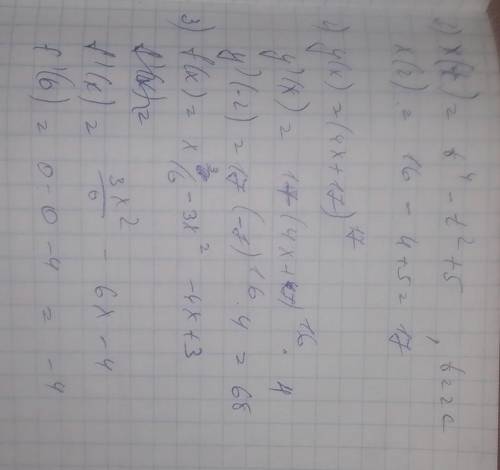 1) x(t) = t⁴ - t² + 5, t = 2 c
x(2) = 16 - 4 + 5 = 17
2) y(x) = (4x + 17)¹⁷
y'(x) = 17(4x + 17)¹⁶ · 4
y'(-2) = 17(-1)¹⁶ · 4 = 68
3) f(x) = x³/6 - 3x² - 4x + 3
f'(x) = 3x²/6 - 6x - 4
f'(6) = 0 - 0 - 4 = -4